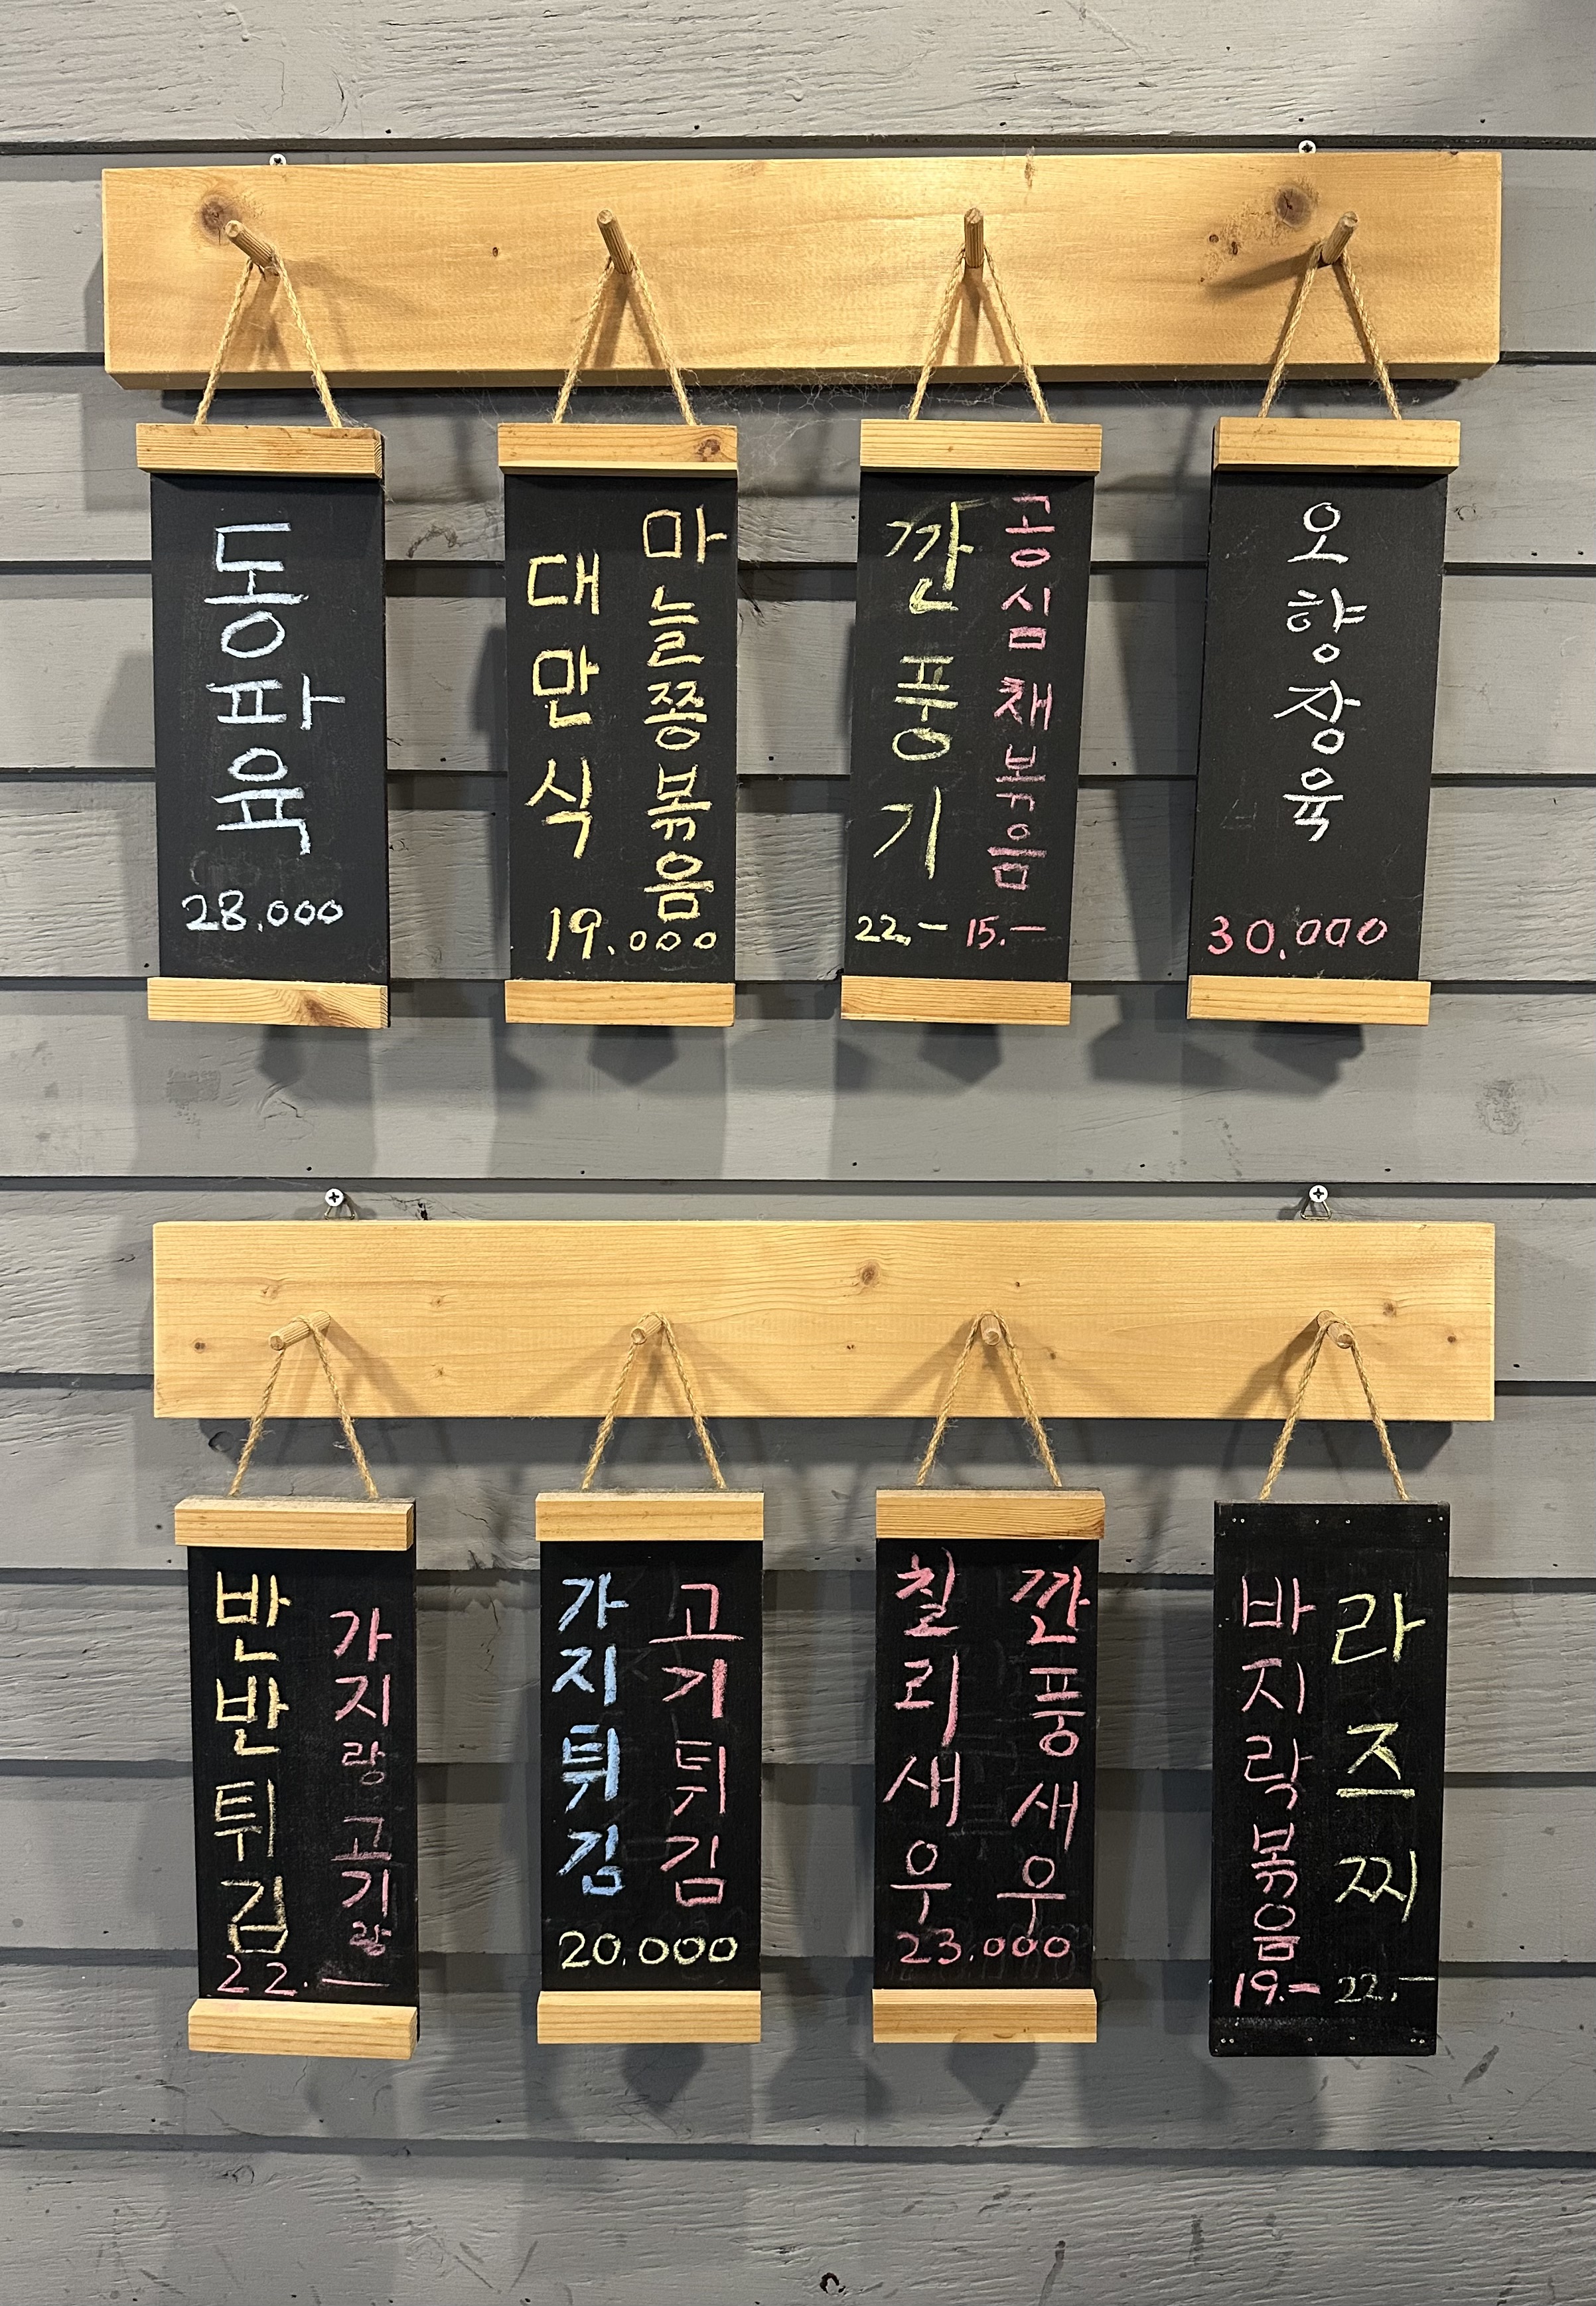 동파육
28.000
대만식
마늘쫑볶음
19.000
깐풍기
공심채볶음
22.- 15.-
오향장육
30.000
반반튀김
가지랑 고기랑
22.-
가지튀김
고기튀김
20.000
칠리새우
깐풍새우
23.000
바지락볶음
라즈찌
19.- 22.-